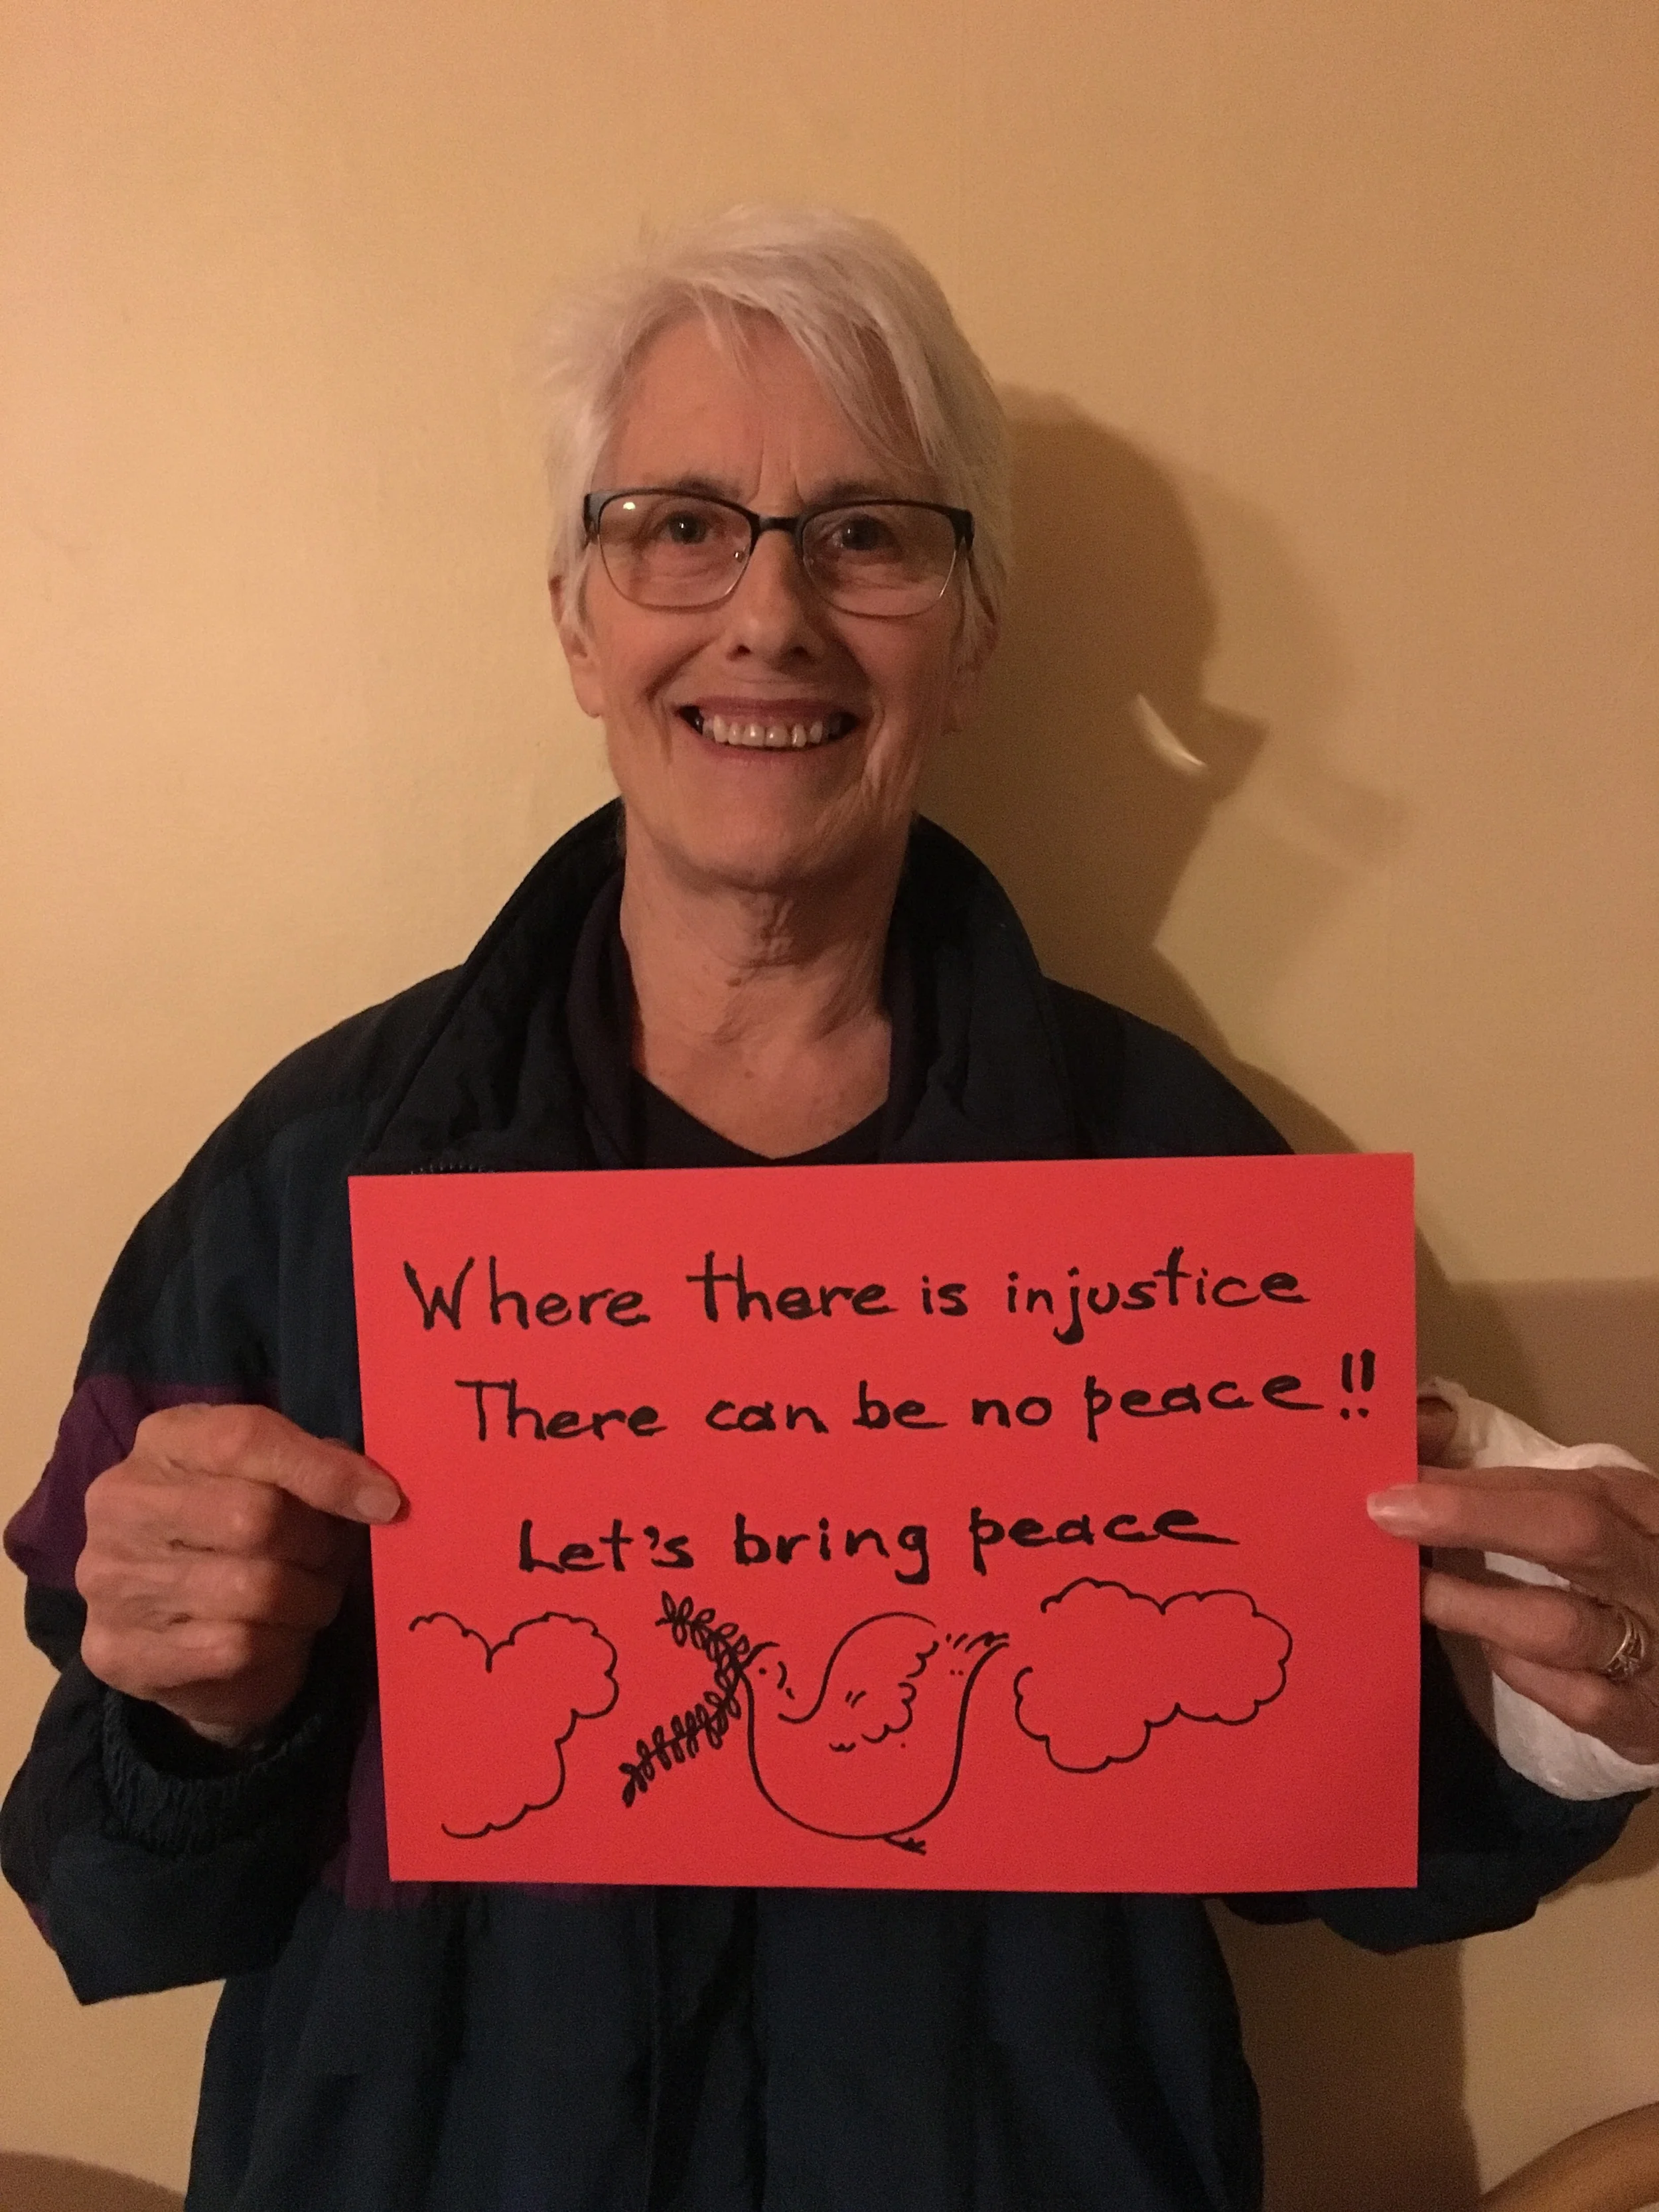 Where there is injustice
There can be no peace!!
Let's bring peace